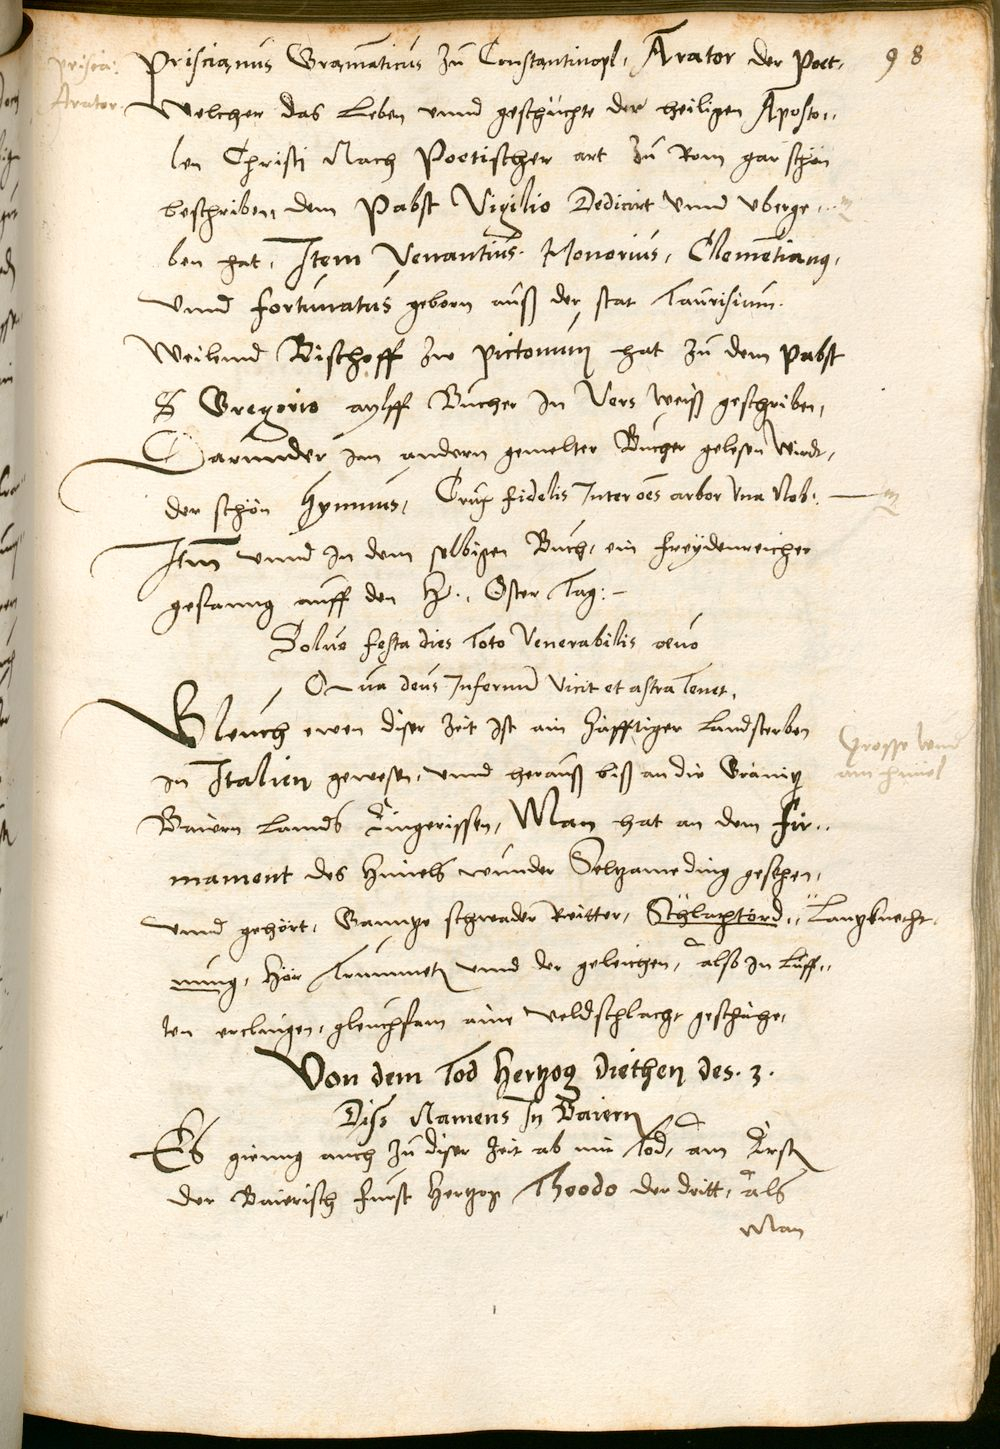 98
Prisca:
Arator.
Priscianus Gram̄aticus zu Constantinopl, Arator der Poet,
Welcher das Leben vnnd geschüchte der heiligen Aposto..
len Christi Nach Poetischer art zu Rom gar schön
beschriben, dem Pabst Vigilio Dedicirt vnnd vberge..
ben hat, Item Venantius. Honorius, Clemetianq,
vnnd fortunatus geborn auß der stat Taurisium.
Weilend Bischoff zw pictonum hat zu dem pabst
S Gregorio aylff Bücher In Vers weiß geschriben,
Darunnder im andern gemelter Bücher gelesen wirdt,
der schön hymnus, Crux fidelis Inter oēs arbor vna Nob:
Item vnnd in dem selbigen Buch, ein freydenreicher
gesanng auff den H.. Oster Tag:
Solue festa dies Toto Venerabilis æuo
Qua deus Infernū vicit et astra tenet,
Gleich ewen diser zeit ist ain häfftiger Landsterben
in Italien gewesen, vnnd herauß biß an die Gränitz
Baiern Lannds Eingerissen, Man hat an dem fir..
mament des Himels wunder Seltzame ding gesehen,
Grosse wund
am himel
vnnd gehört, Gantze schwader Reitter, Lantzknecht
nung, Hör Trummet vnnd der geleichen, also in Lüff..
ten erclungen, gleichsam aine veldschlacht geschähe,
Von dem Tod Hertzog Diethen des. 3.
Diss Namens In Baiern
Es gienng auch zu diser zeit ab mit Tod, am Ersten
der Bairisch fürst Hertzog Theodo der dritt, als
Man